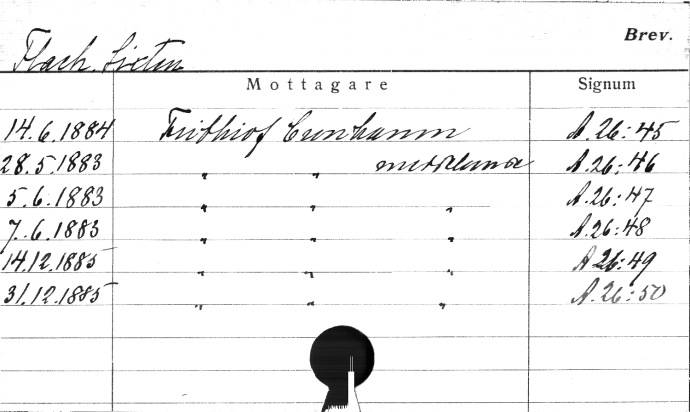 Brev.
Flach, Sixten
Mottagare Signum
14.6.1884 Frithiof Cronhamm A.26:45
28.5.1883 " " meddelande A.26:46
5.6.1883 " " " A.26:47
7.6.1883 " " " A.26:48
14.12.1885 " " " A 26:49
31.12.1885 " " " A.26:50